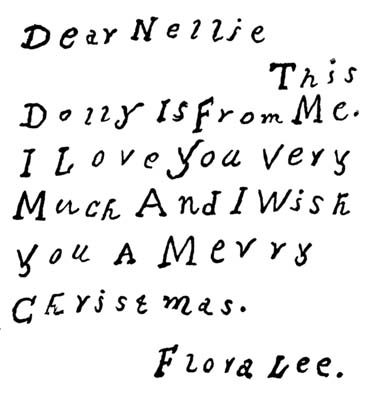 Dear Nellie
This
Dolly Is From Me.
I Love you very
Much And I Wish
you A Merry
Christmas.
Flora Lee.